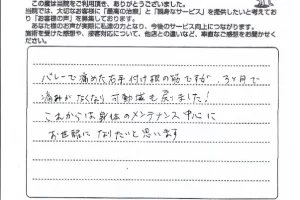 この度は当院をご利用頂き、ありがとうございました。
当院では、大切なお客様に「最高の治療」と「親身なサービス」を提供したいと考えており「お客様の声」を募集しております。
あなた様のお声が実際に私達の力となり、今後のサービス向上につながります。
施術を受けた感想や、接客対応について、他店との違いなど、率直なご感想をお聞かせください。
バレーで痛めた右手付け根の筋ですが、3ヶ月で
痛みがなくなり、可動域も戻りました！
これからは身体のメンテナンス中心に
お世話になりたいと思います